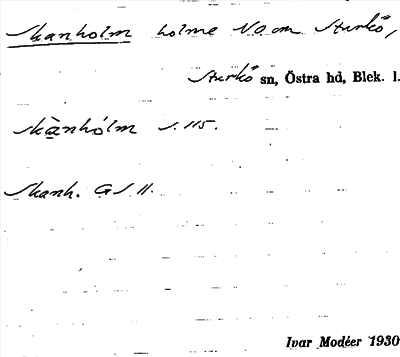 Skanholm holme NO om Sturkö,
Sturkö sn, Östra hd, Blek. l.
Skànhólm s. 115.
Skanh. GS 11.
Ivar Modéer 1930